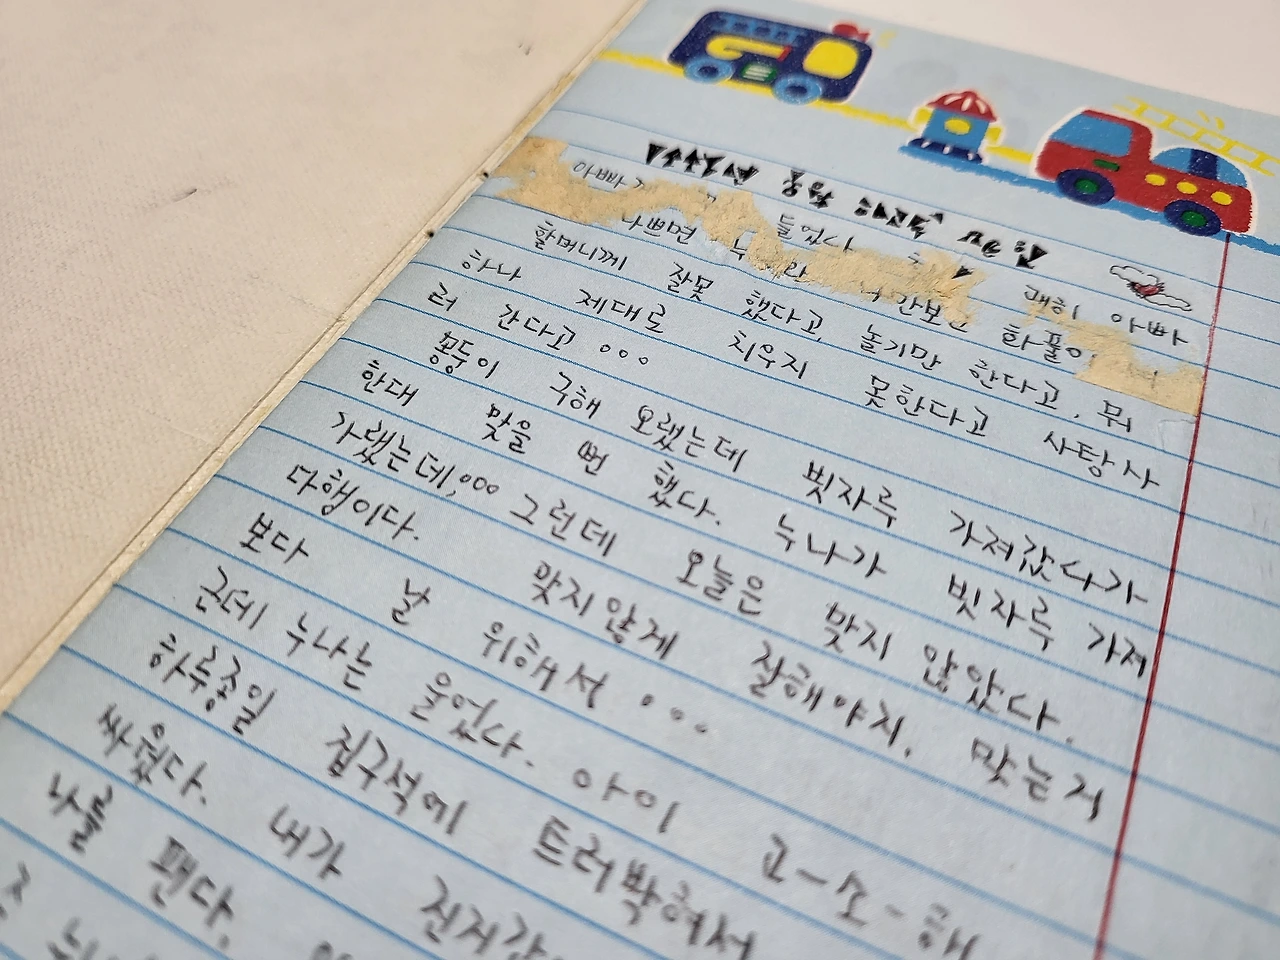 아빠께 들었다 괜히 아빠
나쁘면 화풀이
할머니께 잘못 했다고, 놀기만 한다고. 뭐
하나 제대로 치우지 못한다고 사탕사
러 간다고 ...
몽둥이 구해 오랬는데 빗자루 가져갔다가
한대 맞을 뻔 했다. 누나가 빗자루 가져
가랬는데,... 그런데 오늘은 맞지 않았다.
다행이다. 맞지않게 잘해야지. 맞는거
보다 날 위해서 ...
근데 누나는 울었다. 아이 고-소-해
하루종일 집구석에 트러박혀서
싸웠다. 내가
나를 팬다.